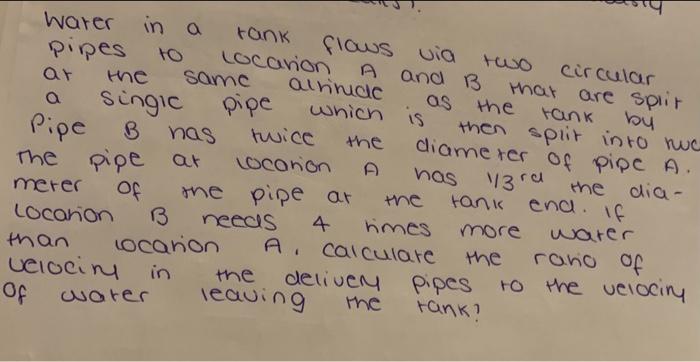 Water in a tank flows via two circular
pipes to location A and B that are split
at the same altitude as the tank by
a single pipe which is then split into two
Pipe B has twice the diameter of pipe A.
The pipe at location A has 1/3rd the dia-
meter of the pipe at the tank end. If
location B needs 4 times more water
than location A, calculate the ratio of
velocity in the delivery pipes to the velocity
of water leaving the tank?